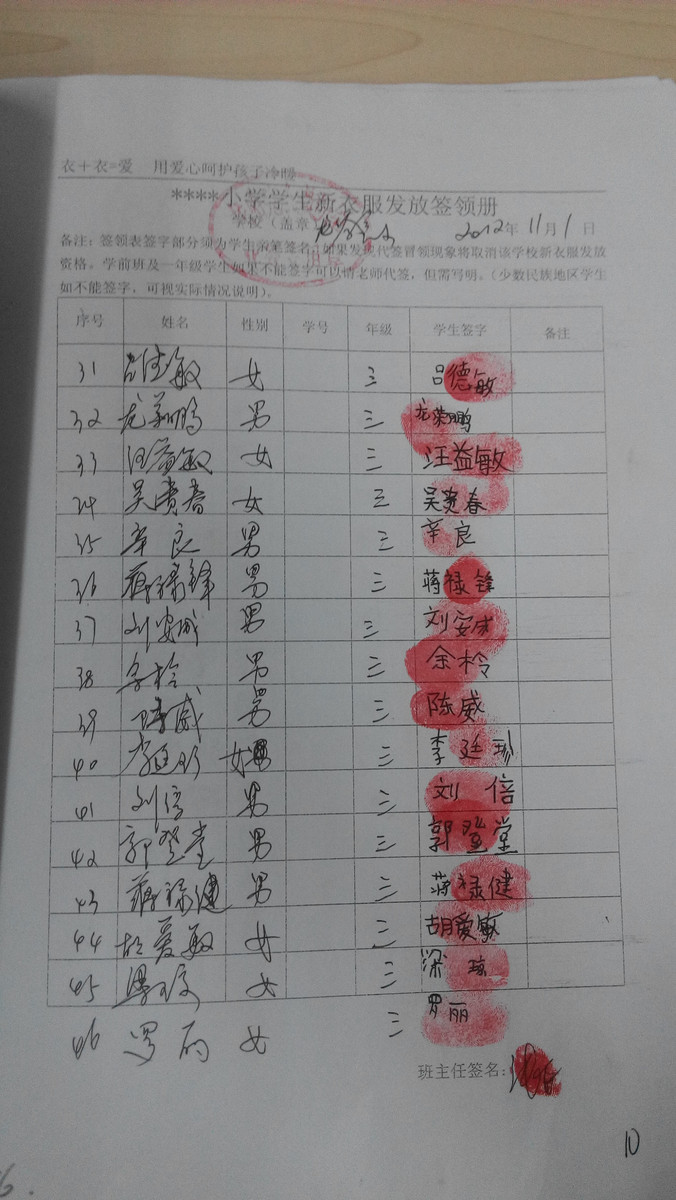 衣+衣=爱 用爱心呵护孩子冷暖
****小学学生新衣服发放签领册
学校（盖章 2012年11月1日
备注：签领表签字部分须为学生亲笔签名，如果发现代签冒领现象将取消该学校新衣服发放
资格。学前班及一年级学生如果不能签字可以请老师代签，但需写明。（少数民族地区学生
如不能签字，可视实际情况说明）。
序号 姓名 性别 学号 年级 学生签字 备注
31 吕德敏 女 三 吕德敏
32 龙荣鹏 男 三 龙荣鹏
33 汪益敏 女 三 汪益敏
34 吴贵春 女 三 吴贵春
35 辛良 男 三 辛良
36 蒋禄锋 男 三 蒋禄锋
37 刘安成 男 三 刘安成
38 余柃 男 三 余柃
39 陈威 男 三 陈威
40 李廷珍 女 三 李廷珍
41 刘倍 男 三 刘倍
42 郭登堂 男 三 郭登堂
43 蒋禄健 男 三 蒋禄健
44 胡爱敏 女 三 胡爱敏
45 梁琼 女 三 梁琼
46 罗丽 女 三 罗丽
班主任签名：
10